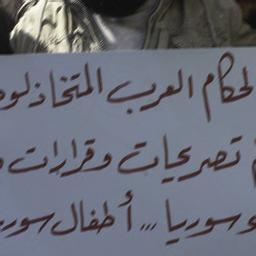 لحكام العرب المتخاذلو
تصريحات وقرارات
وسوريا ... أطفال سور